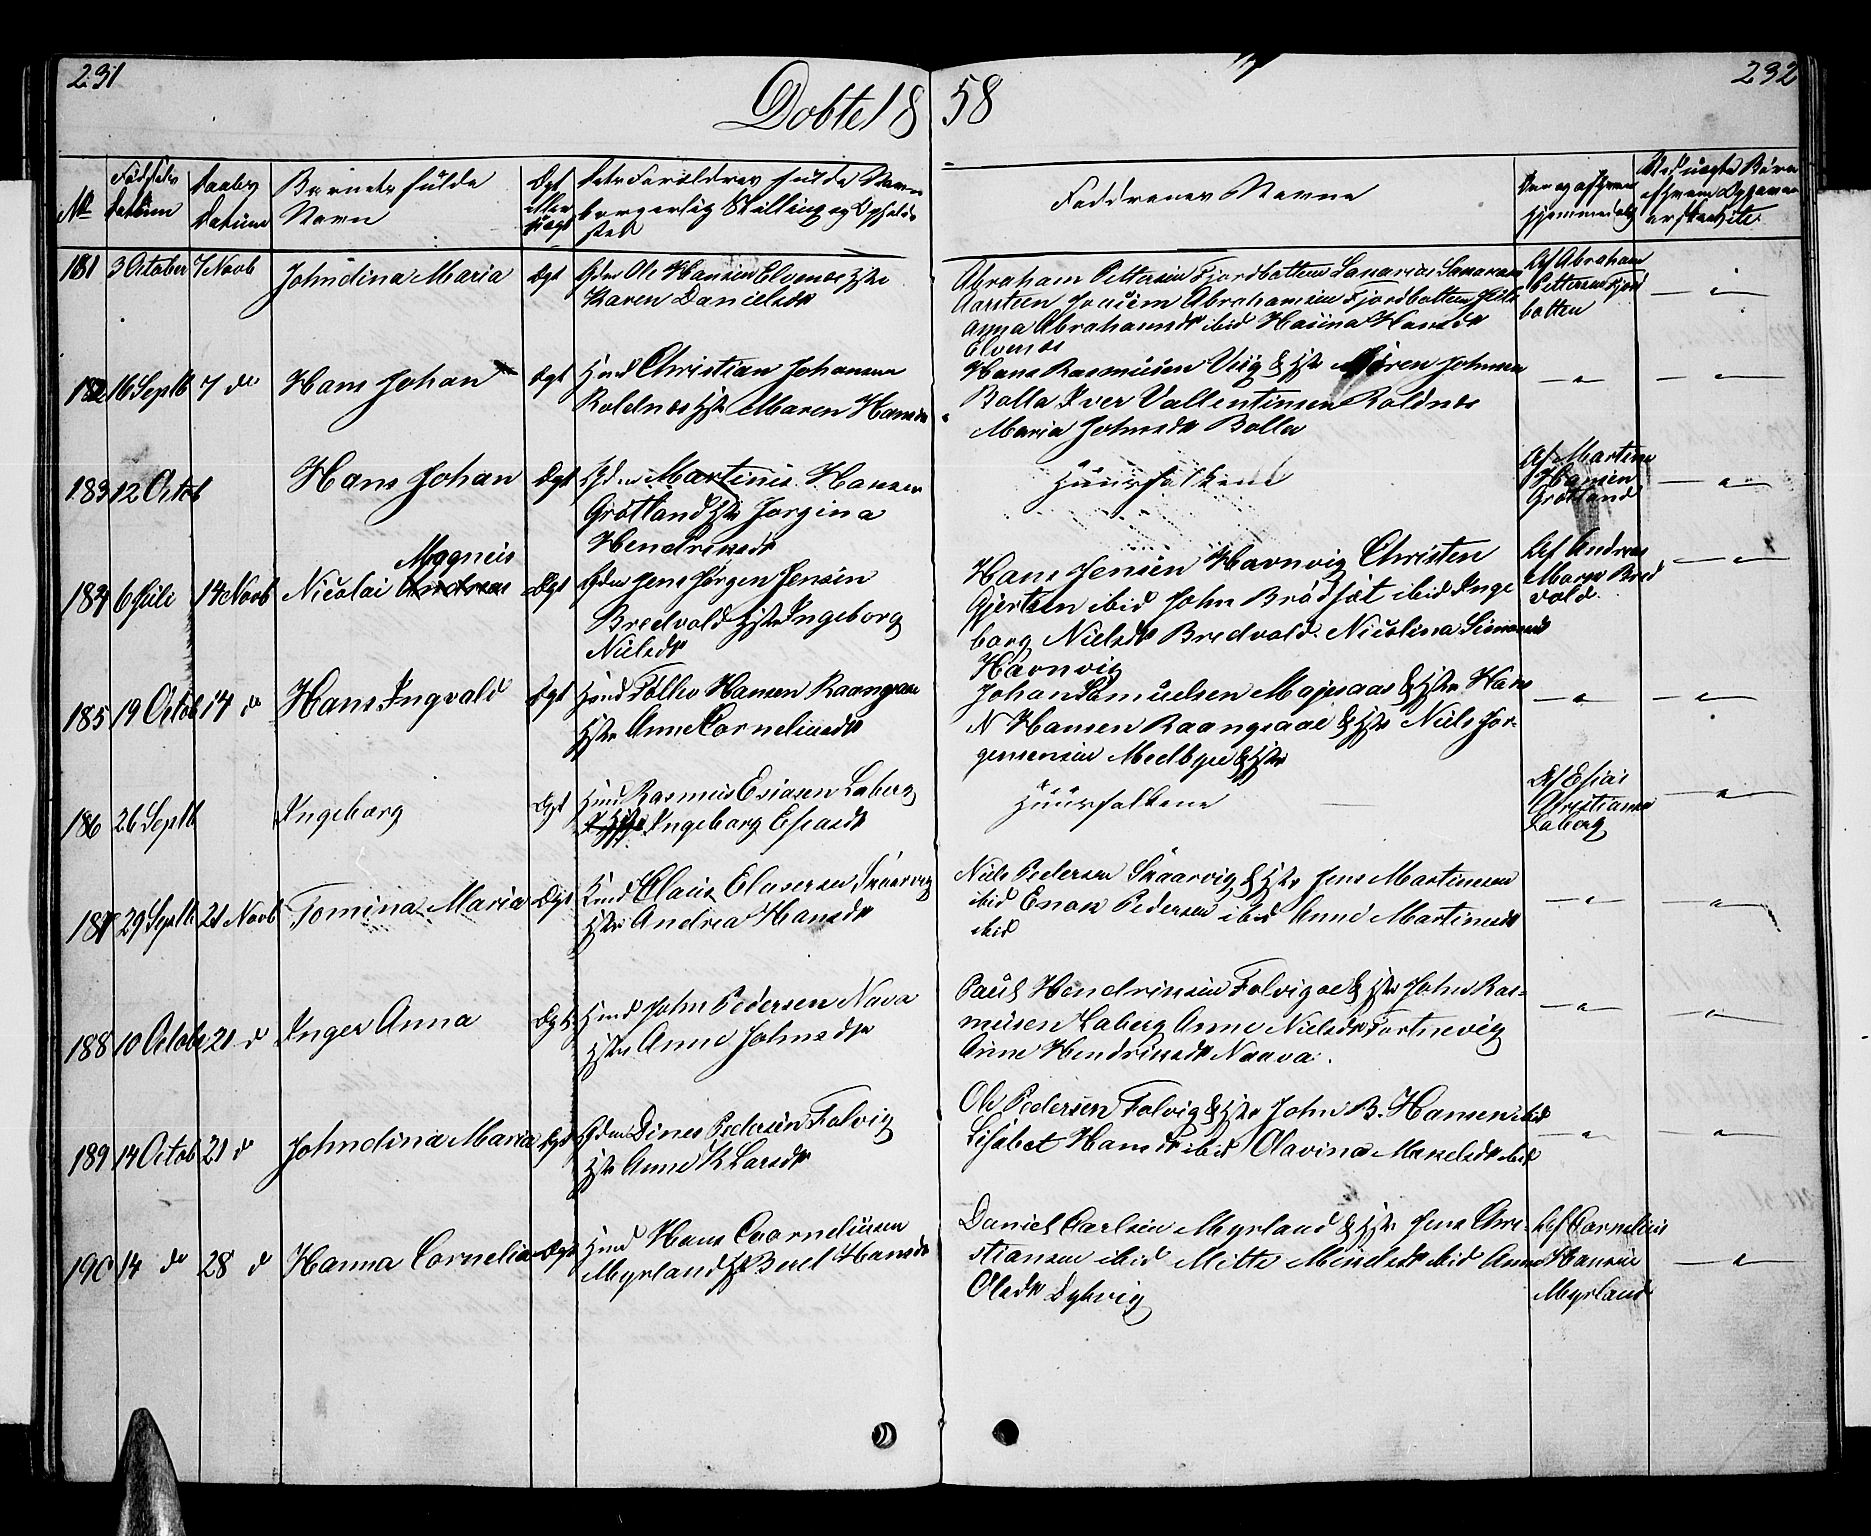 231
232
Døbte 18 58
No
Fødsels Datum
Daabs Datum
Barnets fulde Navn
Ægt eller uægt
Dets Forældres fulde Navn borgerlig Stilling og Opholds sted
Faddrenes Navne
Naar og af hvem hjemmedøbt
181 3 October 7 Novb Johndina Maria Ægt Gdm Ole Hansen Elvenes Hstr
Karen Danielsdr
Abraham Pettersen Fjordbotten Zakarias
Aarsteen Joakim Abrahamsen Fjordbotten
Anna Abrahamsdr ibid Hansina Hansdr
Elvenes
Af Abraham
Pettersen Fjord
botten
182 16 Septb 7 do Hans Johan Ægt Hmd Christian Johansen
Roldnes Hstr Maren Hansdr
Hans Rasmussen Viig & Hstr Maren Johnsen
Bolla Iver Vallentinsen Roldnes
Maria Johnsdr Bolla
183 12 Octob Hans Johan Ægt Gdm Martinus Hansen
Grøtland Hstr Jørgina
Hendriksdr
Huusfolkene
Af Martinus
Hansen
Grøtland
Magnus
184 6 Juli 14 Novb Nicolai Andreas Ægt Gdm Jens Jørgen Jensen
Bredvold Hstr Ingeborg
Nielsdr
Hans Jensen Havnvig Christen
Gjertsen ibid John Brødsjøt ibid Inge
borg Nielsdr Bredvold. Nicolina Simonsdr
Havnvig
Af Andreas
Bred
vold
185 19 Octob 14 do Hans Ingvald Ægt Hmd Tollev Hansen Raangsaae
Hstr Anne Corneliusdr
Johan Samuelsen Majesaas & Hstr Hans
N Hansen Raangsaae & Hstr Niels Jør-
gensen Medbye & Hstr
186 26 Septb Ingeborg Ægt Hmd Rasmus Esiasen Laberg
Hstr Ingeborg Esiasdr
Huusfolkene
Af Esias
Christiansen
Laberg
187 29 Septb 21 Novb Tomina Maria Ægt Hmd Claus Clausersen Skaarvig
Hstr Andrea Hansdr
Niels Pedersen Skaarvig & Hstr Jens Martinussen
ibid Enok Pedersen ibid Anne Martinusdr
ibid
188 10 Octobr 21 d Inger Anna Ægt Hmd John Pedersen Nava
Hstr Anne Johnsdr
Paul Hendriksen Folvigoe & Hstr John Ras-
musen Laberg Anne Nielsdr Fortnevig
Anne Hendriksdr Naava.
189 14 Octob 21 d Johndina Maria Ægt Gdm Dines Pedersen Folvig
Hstr Anne K Larsdr
Ole Pedersen Folvig & Hstr John B. Hansen ibid
Lisabet Hansdr ibid Olavina Mikelsdr ibid
190 14 do 28 d Hanna Cornelia Ægt Hmd Hans Corneliussen
Myrland Hstr Berel Hansdr
Daniel Carlsen Myrland & Hstr Jens Chri-
stiansen ibid Mitte ibid Anne
Olsdr Dyhvig
Af Cornelius
Hansen
Myrland